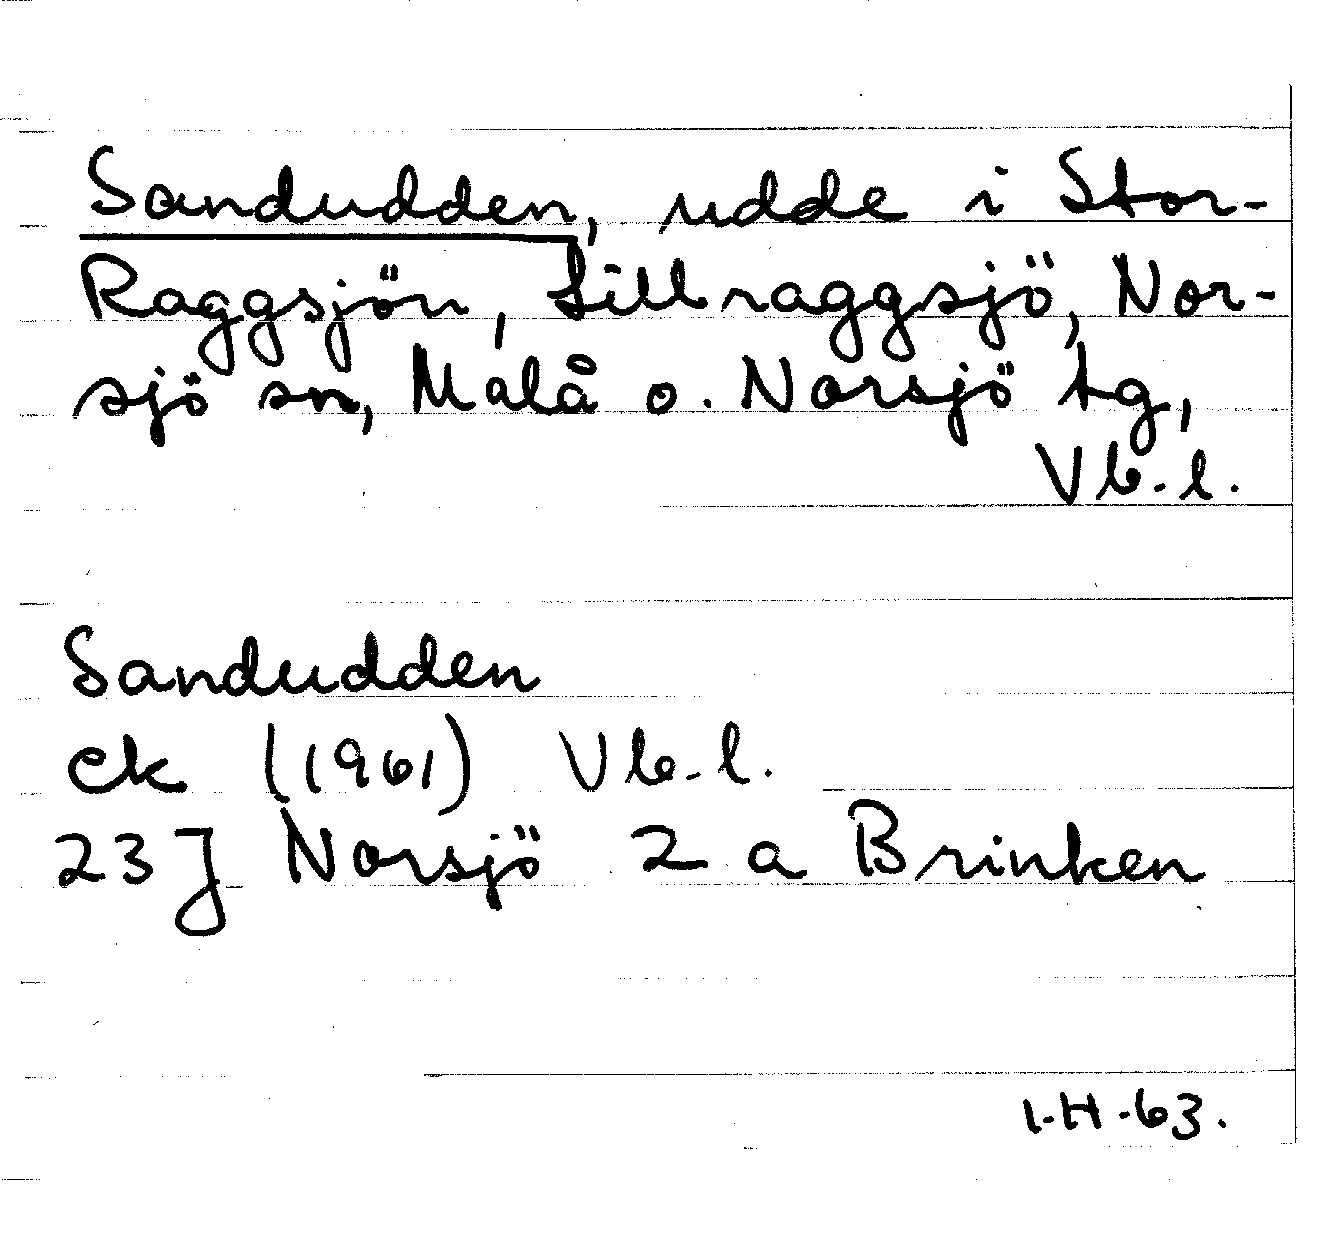 Sandudden, udde i Stor-
Raggsjön, Lillraggsjö, Nor-
sjö sn, Malå o. Norsjö tg,
Vb.l.
Sandudden
ek (1961) Vb.l.
23J Norsjö 2a Brinken
I.H.63.